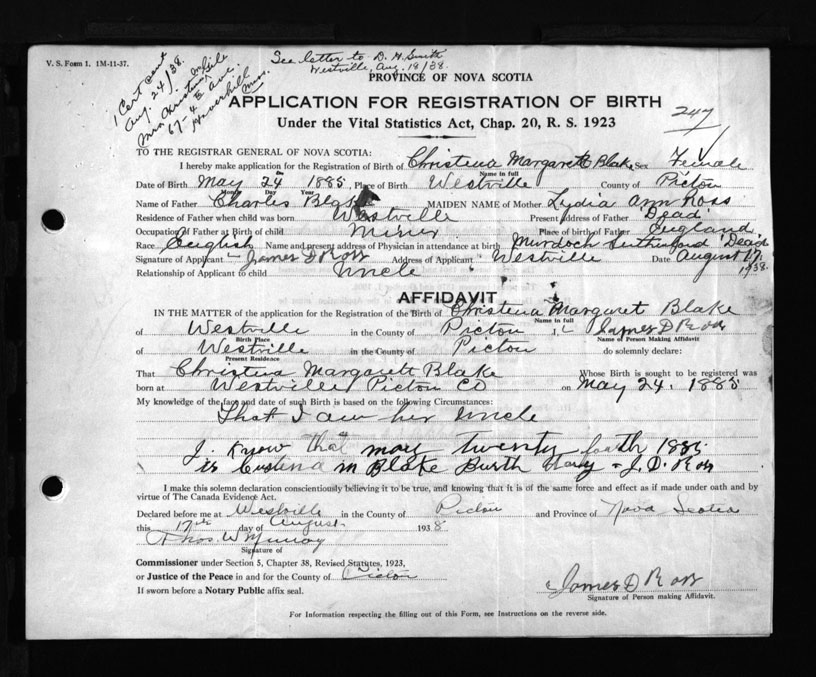 V. S. Form 1. 1M-11-37.
See letter to D. H. Smith
Westville, Aug. 18/38.
1 Cert sent
Aug. 24/38.
Mrs Christina Lile
67-4 Ave.
Haverhill
Mass.
PROVINCE OF NOVA SCOTIA
APPLICATION FOR REGISTRATION OF BIRTH
247
Under the Vital Statistics Act, Chap. 20, R. S. 1923
TO THE REGISTRAR GENERAL OF NOVA SCOTIA:
I hereby make application for the Registration of Birth of Christena Margarett Blake Sex Female
Name in full
Date of Birth May 24 1885, Place of Birth Westville County of Pictou
Month Day Year
Name of Father Charles Blake MAIDEN NAME of Mother Lydia Ann Ross
Residence of Father when child was born Westville Present Address of Father Dead
Occupation of Father at Birth of child Miner Place of birth of Father England
Race English Name and present address of Physician in attendance at birth Murdoch Sutherland Dead
Signature of Applicant James D Ross Address of Applicant Westville Date August 17, 1938.
Relationship of Applicant to child Uncle
AFFIDAVIT
IN THE MATTER of the application for the Registration of the Birth of Christena Margaret Blake
Name in full
of Westville in the County of Pictou I, James D Ross
Birth Place Name of Person Making Affidavit
of Westville in the County of Pictou do solemnly declare:
Present Residence
That Christena Margarett Blake Whose Birth is sought to be registered was
born at Westville Pictou Co on May 24, 1885
My knowledge of the fact and date of such Birth is based on the following Circumstances:
That I am her Uncle
I. Know that may twenty fourth 1885
is Cristena M Blake Burth Day - J. D. Ross
I make this solemn declaration conscientiously believing it to be true, and knowing that it is of the same force and effect as if made under oath and by
virtue of The Canada Evidence Act.
Declared before me at Westville in the County of Pictou and Province of Nova Scotia
this 17th day of August 1938
Thos. W Murray
Signature of
Commissioner under Section 5, Chapter 38, Revised Statutes, 1923,
or Justice of the Peace in and for the County of Pictou
James D Ross
If sworn before a Notary Public affix seal.
Signature of Person making Affidavit.
For Information respecting the filling out of this Form, see Instructions on the reverse side.